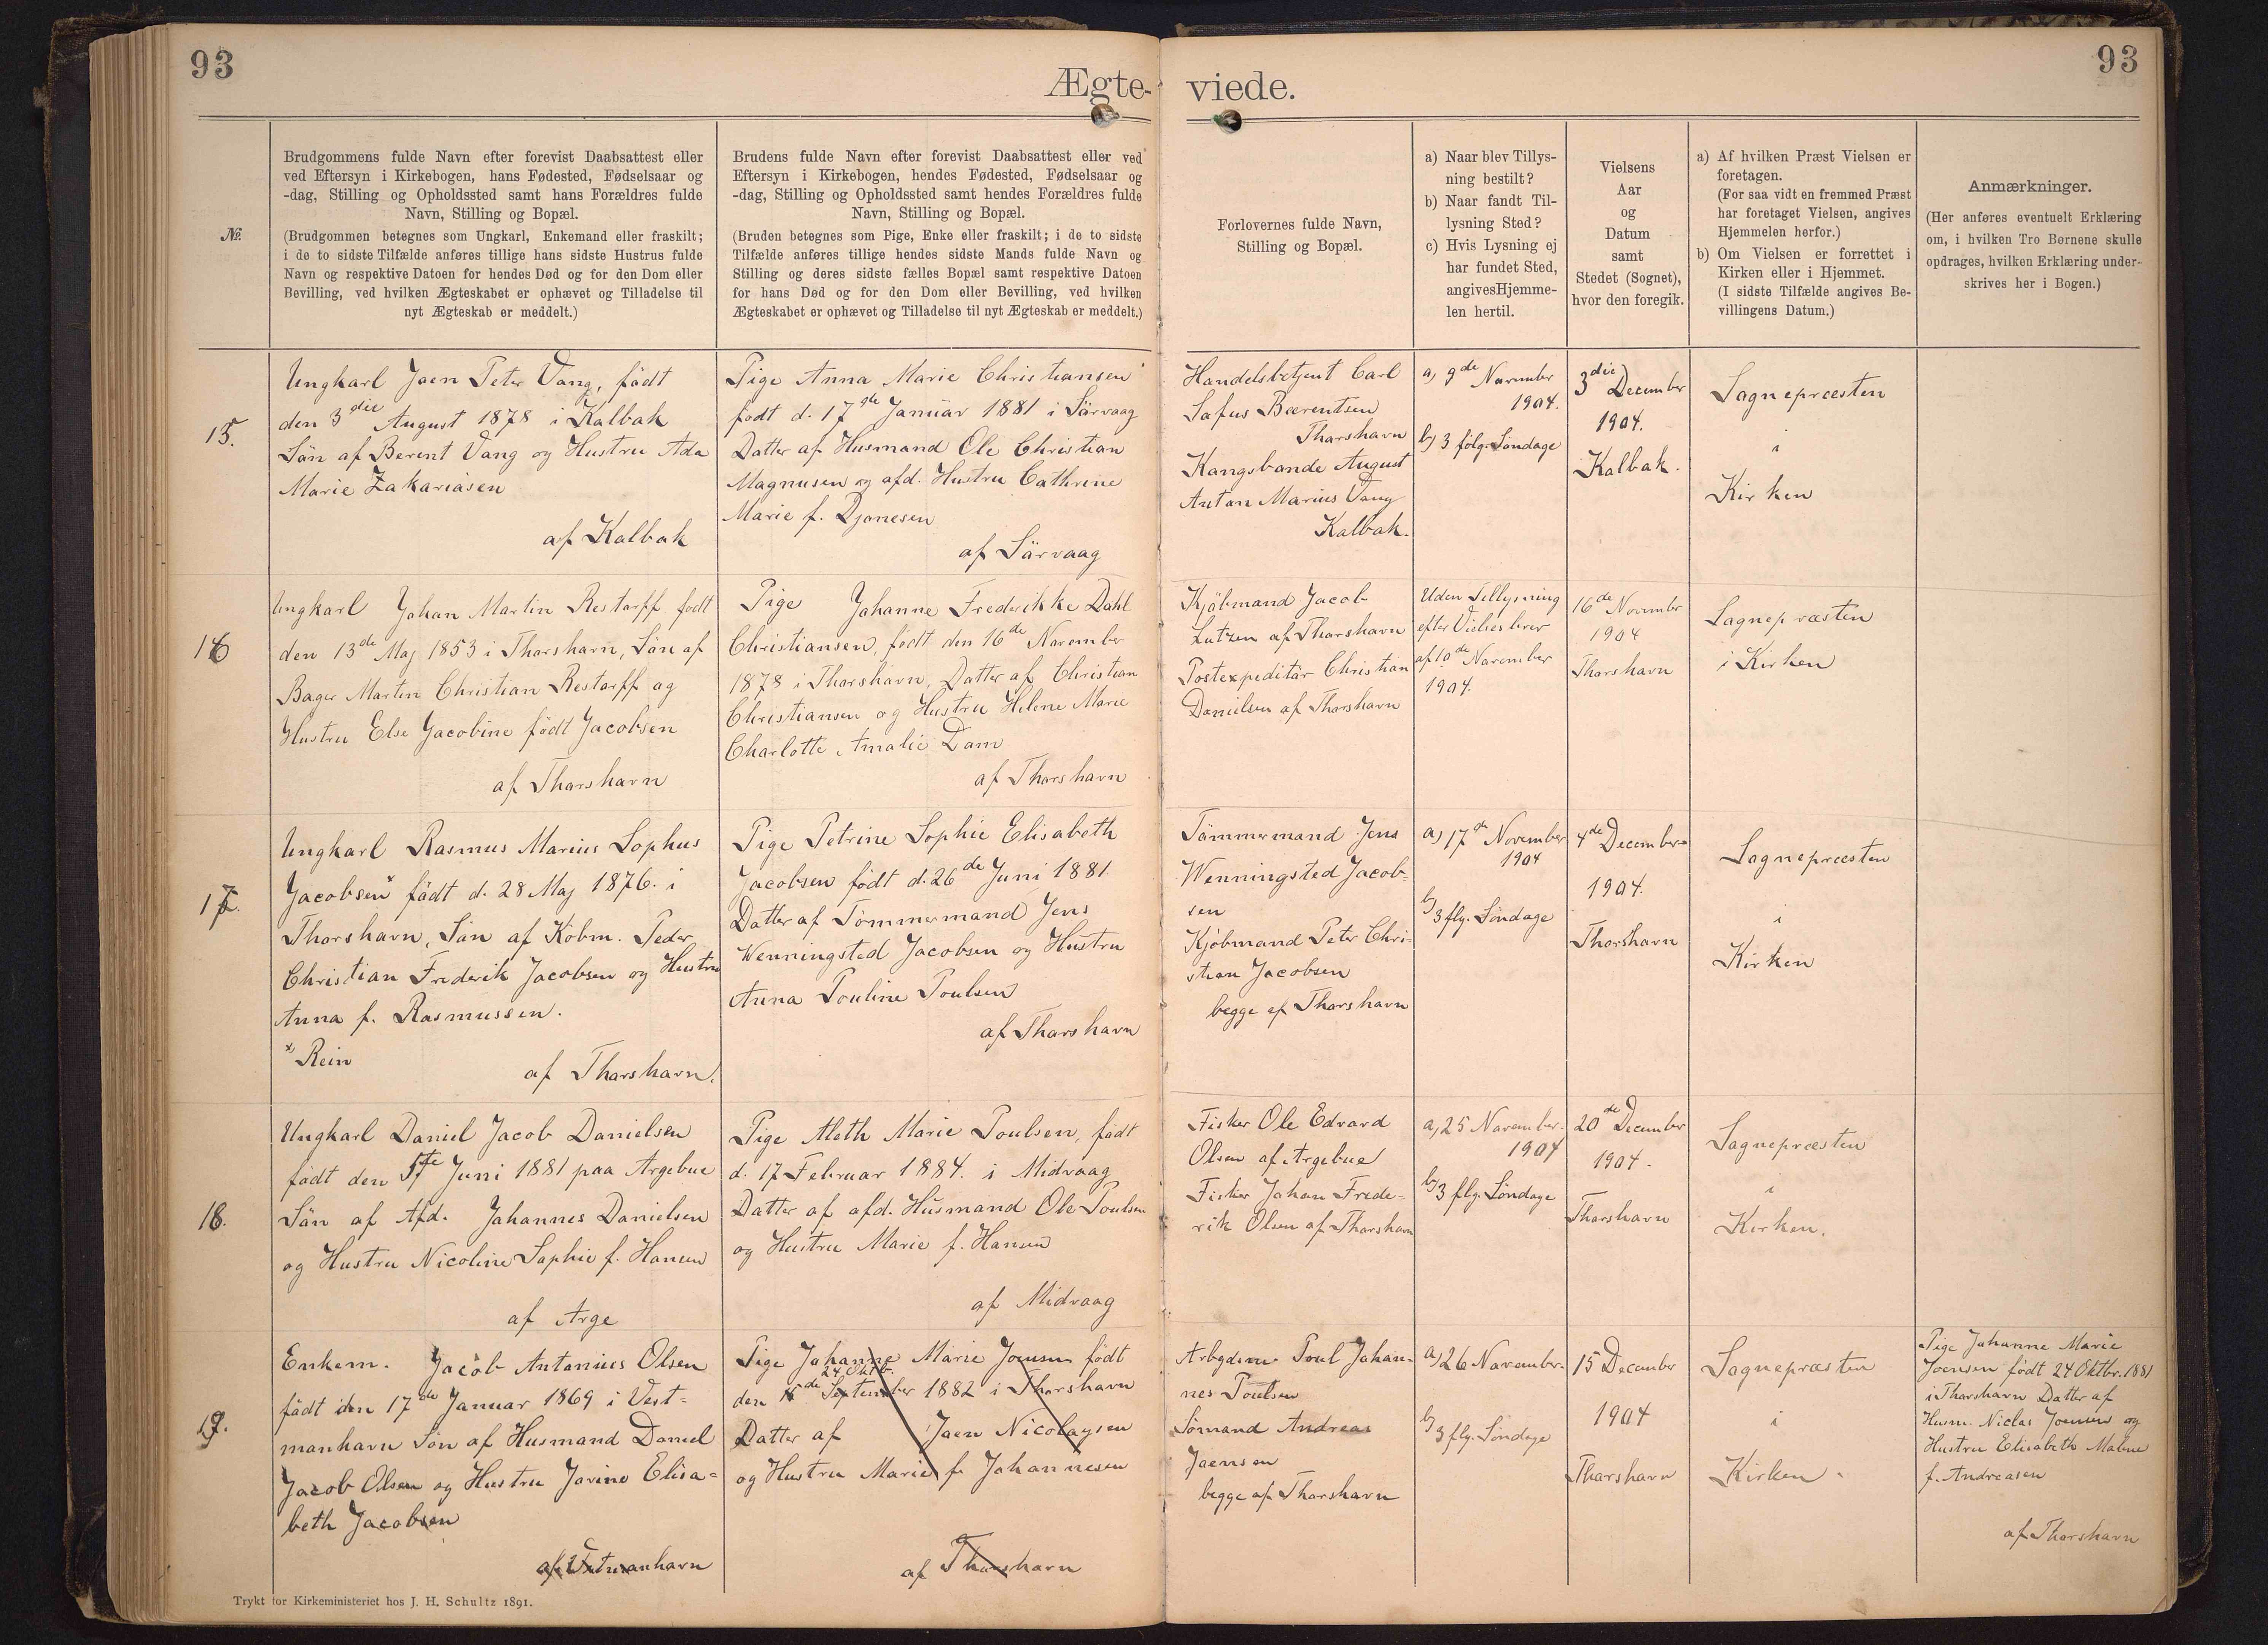 93
93
Ægte-
viede.
№.
Brudgommens fulde Navn efter forevist Daabsattest eller
ved Eftersyn i Kirkebogen, hans Fødested, Fødselsaar og
-dag, Stilling og Opholdssted samt hans Forældres fulde
Navn, Stilling og Bopæl.
(Brudgommen betegnes som Ungkarl, Enkemand eller fraskilt;
i de to sidste Tilfælde anføres tillige hans sidste Hustrus fulde
Navn og respektive Datoen for hendes Død og for den Dom eller
Bevilling, ved hvilken Ægteskabet er ophævet og Tilladelse til
nyt Ægteskab er meddelt.)
Brudens fulde Navn efter forevist Daabsattest eller ved
Eftersyn i Kirkebogen, hendes Fødested, Fødselsaar og
-dag, Stilling og Opholdssted samt hendes Forældres fulde
Navn, Stilling og Bopæl.
(Bruden betegnes som Pige, Enke eller fraskilt; i de to sidste
Tilfælde anføres tillige hendes sidste Mands fulde Navn og
Stilling og deres sidste fælles Bopæl samt respektive Datoen
for hans Død og for den Dom eller Bevilling, ved hvilken
Ægteskabet er ophævet og Tilladelse til nyt Ægteskab er meddelt.)
Forlovernes fulde Navn,
Stilling og Bopæl.
a) Naar blev Tillys-
ning bestilt?
b) Naar fandt Til-
lysning Sted?
c) Hvis Lysning ej
har fundet Sted,
angivesHjemme-
len hertil.
Vielsens
Aar
og
Datum
samt
Stedet (Sognet),
hvor den foregik.
a) Af hvilken Præst Vielsen er
foretagen.
(For saa vidt en fremmed Præst
har foretaget Vielsen, angives
Hjemmelen herfor.)
b) Om Vielsen er forrettet i
Kirken eller i Hjemmet.
(I sidste Tilfælde angives Be-
villingens Datum.)
Anmærkninger.
(Her anføres eventuelt Erklæring
om, i hvilken Tro Børnene skulle
opdrages, hvilken Erklæring under-
skrives her i Bogen.)
15.
Ungkarl Joen Peter Vang, født
den 3die August 1878 i Kalbak
Sön af Berent Vang og Hustru Ada
Marie Zakariasen
af Kalbak
Pige Anna Marie Christiansen
født d. 17de Januar 1881 i Sörvaag
Datter af Husmand Ole Christian
Magnusen og afd. Hustru Cathrine
Marie f. Djonesen
af Sörvaag
Handelsbetjent Carl
Sofus Bærentsen
Thorshavn
Kongsbonde August
Anton Marius Vang
Kalbak.
a, 9de November
1904.
b, 3 følg. Søndage
3die December
1904.
Kalbak.
Sognepræsten
i
Kirken
16
Ungkarl Johan Martin Restorff født
den 13de Maj 1853 i Thorshavn, Sön af
Bager Martin Christian Restorff og
Hustru Else Jacobine født Jacobsen
af Thorshavn
Pige Johanne Frederikke Dahl
Christiansen, født den 16de November
1878 i Thorshavn, Datter af Christian
Christiansen og Hustru Helene Marie
Charlotte Amalie Dam
af Thorshavn
Kjöbmand Jacob
Lutzen af Thorshavn
Postexpeditör Christian
Danielsen af Thorshavn
Uden Tillysning
efter Vielsesbrev
af 10de November
1904.
16de November
1904
Thorshavn
Sognepræsten
i Kirken
17.
Ungkarl Rasmus Marius Sophus
Jacobsen x födt d. 28 Maj 1876. i
Thorshavn, Sön af Kobm. Peder
Christian Frederik Jacobsen og Hustru
Anna f. Rasmussen.
x, Rein
af Thorshavn.
Pige Petrine Sophie Elisabeth
Jacobsen födt d. 26de Juni 1881
Datter af Tömmermand Jens
Wenningsted Jacobsen og Hustru
Anna Pouline Poulsen
af Thorshavn
Tömmermand Jens
Wenningsted Jacob-
sen
Kjöbmand Peter Chri-
stian Jacobsen
begge af Thorshavn
a, 17de November
1904
b, 3 flg. Søndage
4de December
1904.
Thorshavn
Sognepræsten
i
Kirken
18.
Ungkarl Daniel Jacob Danielsen
födt den 5te Juni 1881 paa Argebue
Sön af Afd. Johannes Danielsen
og Hustru Nicoline Sophie f. Hansen
af Arge
Pige Aleth Marie Poulsen, födt
d. 17 Februar 1884. i Midvaag
Datter af afd. Husmand Ole Poulsen
og Hustru Marie f. Hansen
af Midvaag
Fisker Ole Edvard
Olsen af Argebue
Fisker Johan Frede-
rik Olsen af Thorshavn
a, 25 November.
1904
b, 3 flg. Søndage
20de December
1904.
Thorshavn
Sognepræsten
i
Kirken.
19.
Enkem. Jacob Antonius Olsen
födt den 17de Januar 1869 i Vest-
manhavn Søn af Husmand Daniel
Jacob Olsen og Hustru Jovine Elisa-
beth Jacobsen
af Vestmanhavn
Pige Johanne Marie Joensen födt
24 Oktb.
den de September 1882 i Thorshavn
Datter af Joen Nicolaysen
og Hustru Marie f. Johannesen
af Thorshavn
Poul Johan-
nes Poulsen
Sömand Andreas
Joensen
begge af Thorshavn
a, 26 November.
b, 3 flg. Søndage
15 December
1904
Thorshavn
Sognepræsten
i
Kirken.
Pige Johanne Marie
Joensen födt 24 Oktbr. 1881
i Thorshavn Datter af
Husm. Niclas Joensen og
Hustru Elisabeth Malene
f. Andreasen
af Thorshavn
Trykt for Kirkeministeriet hos J. H. Schultz 1891.